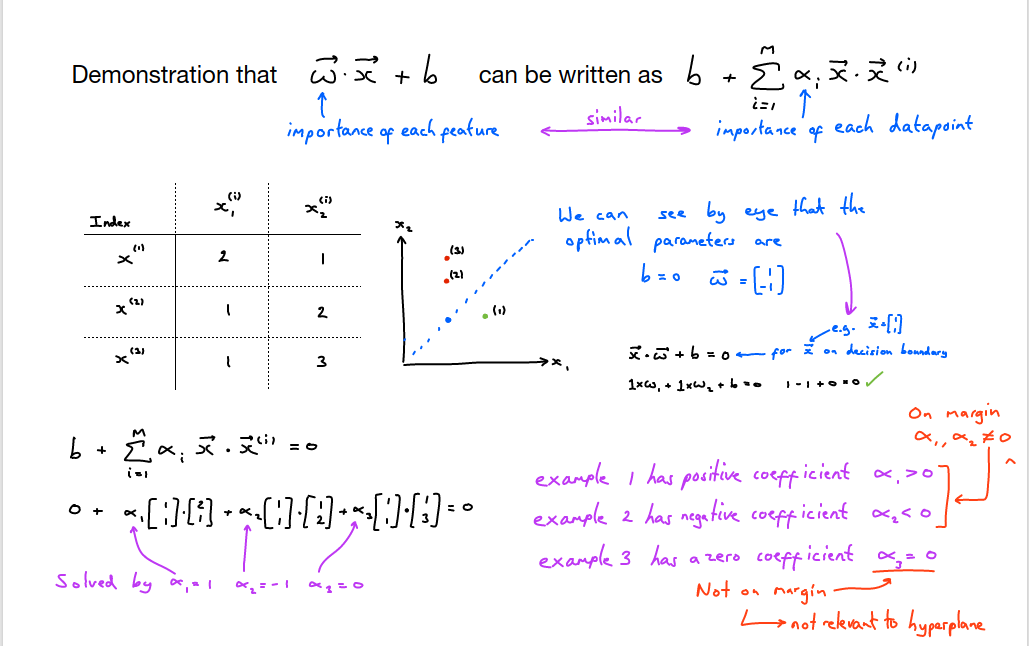 Demonstration that ω⃗·x⃗ + b can be written as b + Σ_{i=1}^{M} α_i x⃗·x⃗^(i)
importance of each feature
similar
importance of each datapoint
Index x₁^(i) x₂^(i)
x^(1) 2 1
x^(2) 1 2
x^(3) 1 3
x₂
(3)
(2)
(1)
x₁
We can see by eye that the
optimal parameters are
b = 0 ω⃗ = [1 -1]
e.g. x⃗ = [1 1]
x⃗·ω⃗ + b = 0 for x⃗ on decision boundary
1×ω₁ + 1×ω₂ + b = 0 1 - 1 + 0 = 0 ✓
b + Σ_{i=1}^{M} α_i x⃗·x⃗^(i) = 0
0 + α₁[1 1]·[2 1] + α₂[1 1]·[1 2] + α₃[1 1]·[1 3] = 0
Solved by α₁ = 1 α₂ = -1 α₃ = 0
On margin
α₁, α₂ ≠ 0
example 1 has positive coefficient α₁ > 0
example 2 has negative coefficient α₂ < 0
example 3 has a zero coefficient α₃ = 0
Not on margin
not relevant to hyperplane